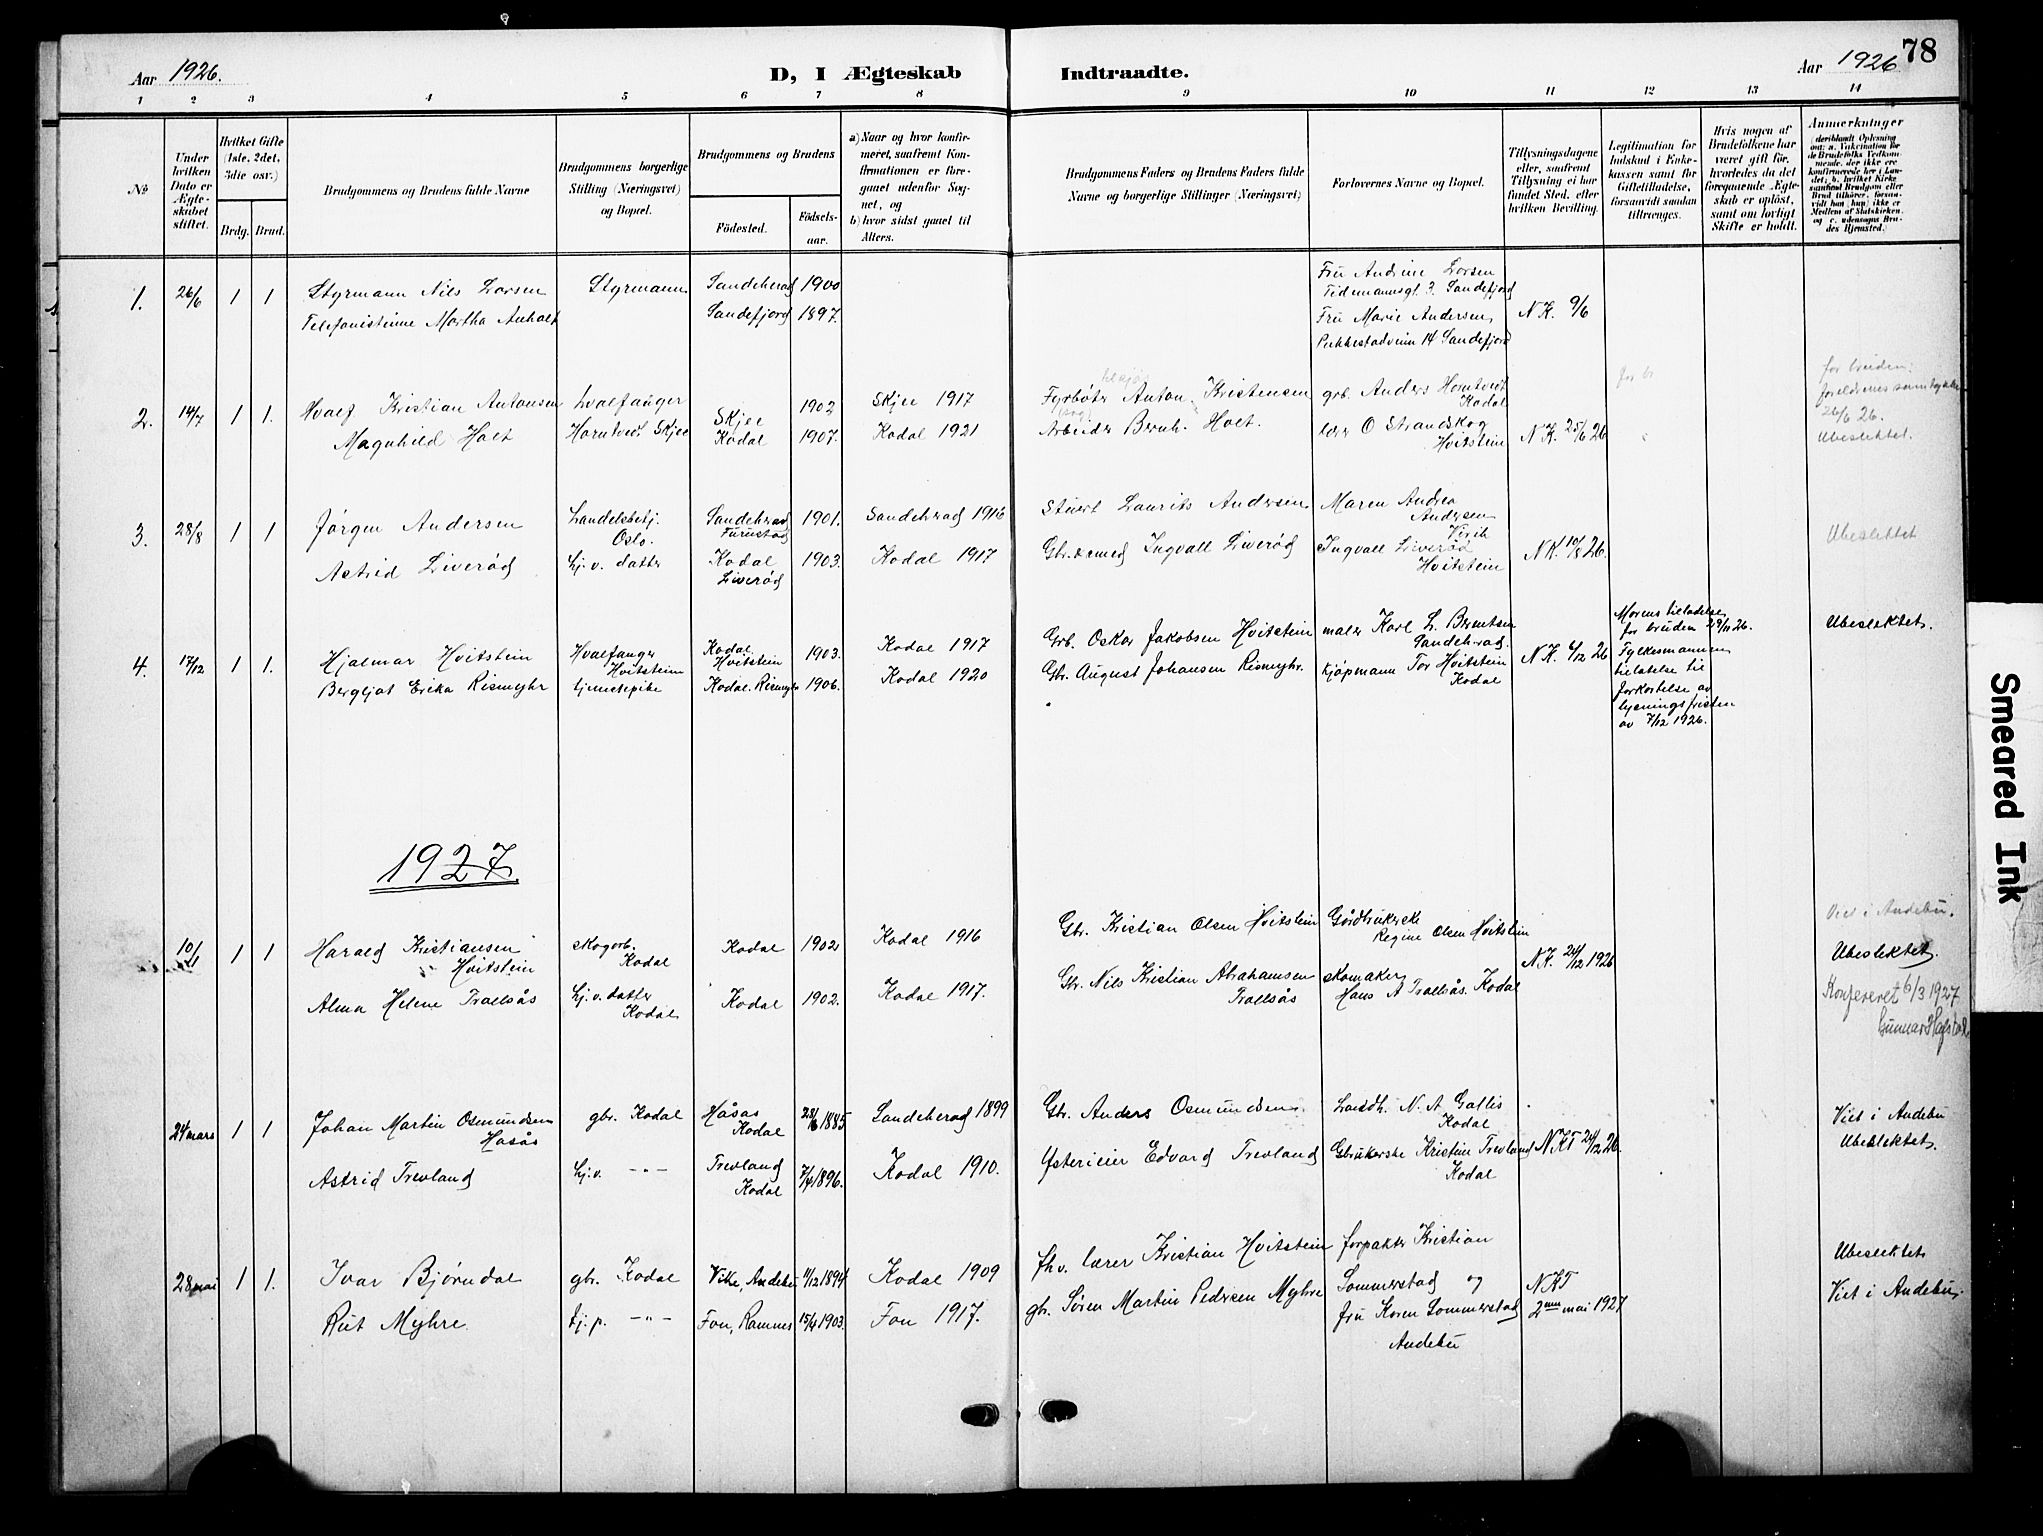 78
Aar 1926.
D, I Ægteskab Indtraadte.
Aar 1926
1 2 3 4 5 6 7 8 9 10 11 12 13 14
No
Under hvilken Dato er Ægteskabet stiftet.
Hvilket Gifte (1ste, 2det, 3die osv.)
Brdg. Brud.
Brudgommens og Brudens fulde Navne
Brudgommens borgerlige Stilling (Næringsvei) og Bopæl.
Brudgommens og Brudens
Fødested.
Fødselsaar.
a) Naar og hvor konfirmeret, saafremt Konfirmationen er foregaaet udenfor Sognet, og
b) hvor sidst gaaet til Alters.
Brudgommens Faders og Brudens Faders fulde Navne og borgerlige Stillinger (Næringsvei)
Forlovernes Navne og Bopæl.
Tillysningsdagene eller, saafremt Tillysning ei har fundet Sted, efter hvilken Bevilling.
Legitimation for Indskud i Enkekassen samt for Giftetilladelse, forsaavidt saadan tiltrænges.
Hvis nogen af Brudefolkene har været gift før, hvorledes da det foregaaende Ægteskab er opløst, samt om lovligt Skifte er holdt.
Anmerkninger
(deriblandt Oplysning om: a. Vakcination for de Brudefolks Vedkommende, der ikke ere konfirmerede her i Landet; b. hvilket Kirkesamfund Brudgom eller Brud tilhører, forsaavidt han (hun) ikke er Medlem af Statskirken, og c. udensogns Brudes Hjemsted.)
1. 26/6 1 1
Styrmann Nils Larsen Styrmann Sandeherad 1900
Telefonistinne Martha Anholt Sandefjord 1897.
Fru Andrine Larsen
Tidemannsgt. 3. Sandefjord
Fru Marie Andersen
Pukkestadveien 14 Sandefjord
N.K. 9/6
2. 14/7 1 1.
Hvalf. Kristian Antonsen hvalfanger Skjee 1902 Skjee 1917
Magnhild Holt Horntvet Skjee Kodal 1907. Kodal 1921
Fyrbøter Anton Kristensen
Arbeider Bernh. Holt.
grb. Anders Horntvedt
Kodal
lærer O Strandskog
Hvitstein
N.K. 25/6 26
for br
for bruden:
foreldrenes samtykke
26/6 26.
Ubeslektet.
3. 28/8 1 1
Jørgen Andersen Handelsbetj. Sandeherad 1901. Sandeherad 1916
Oslo. Furustad
Astrid Liverød hj. v. datter Kodal 1903. Kodal 1917
Liverød
Stuert Laurits Andersen
Gbr. Ingvall Liverød
Maren Andrea
Andersen
Virik
Ingvall Liverød
Hvitstein
N.K. 10/8 26.
Ubeslektet
4. 17/12 1 1.
Hjalmar Hvitstein Hvalfanger Kodal 1903. Kodal 1917
Hvitstein Hvitstein
Bergljot Erika Rismyhr tjenestepike Kodal. Rismyhr 1906. Kodal 1920
Grb. Oskar Jakobsen Hvitstein
Gbr. August Johansen Rismyhr.
maler Karl L. Berntsen
Sandeherad.
kjøpmann Tor Hvitstein
Kodal
N.K. 6/12 26
Morens tilladelse
for bruden 29/11 26.
Fylkesmannen
tilatelse til
forkortelse av
lysningsfristen
av 7/12 1926.
Ubeslektet.
1927.
10/1 1 1
Harald Kristiansen skogarb. Kodal 1902 Kodal 1916
Hvitstein Kodal
Alma Helene Trollsås hj. v. datter Kodal 1902. Kodal 1917.
Kodal
Gbr. Kristian Olsen Hvitstein
Gbr. Nils Kristian Abrahamsen
Trollsås
Gårdbrukerske
Regine Olsen Hvitstein
skomaker
Hans A Trollsås. Kodal
N.K. 24/12 1926
Viet i Andebu.
Ubeslektet.
Konfereret 6/3 1927
Gunnar
24 mars 1 1
Johan Martin Osmundsen gbr. Kodal Håsås 23/6 1885 Sandeherad 1899
Håsås Kodal
Astrid Trevland hj. v. -"- Trevland 7/4 1896. Kodal 1910.
Kodal
Gbr. Anders Osmundsen
Ysterieier Edvard Trevland
Landh. N. A. Gallis
Kodal
Gbrukerske Kristine Trevland
Kodal
NKT 24/12 26.
Viet i Andebu
Ubeslektet.
28 mai 1 1.
Ivar Bjørndal gbr. Kodal Vike, Andebu 11/12 1894 Kodal 1909
Rut Myhre. hj. p. -"- Fon, Ramnes 15/4 1903. Fon 1917.
fhv. lærer Kristian Hvitstein
gbr. Søren Martin Pedersen Myhre
forpakter Kristian
Sommerstad og
fru Karen Sommerstad
Andebu
NKT
2nen mai 1927
Ubeslektet
Viet i Andebu.
Smeared Ink